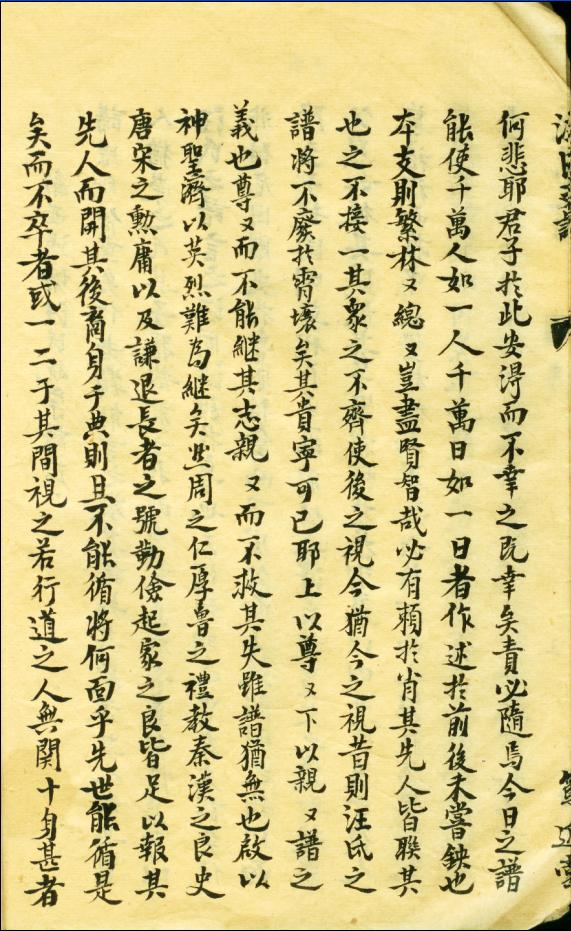 何悲耶君子於此安得而不幸之既幸矣責必隨焉今日之譜
能使千萬人如一人千萬日如一日者作述於前後未嘗缺也
本支則繁林〻總〻豈盡賢智哉必有賴於肖其先人皆聯其
也之不接一其衆之不齊使後之視今猶今之視昔則汪氏之
譜將不廢於霄壤矣其責寧可已耶上以尊〻下以親〻譜之
義也尊〻而不能継其志親〻而不救其失雖譜猶無也啟以
神聖濟以英烈難為継矣然周之仁厚魯之禮教秦漢之良史
唐宋之勲庸以及謙退長者之號勤儉起家之良皆足以報其
先人而開其後裔身于典則且不能循將何面乎先世能循是
矣而不卒者或一二于其間視之若行道之人無関十身甚者